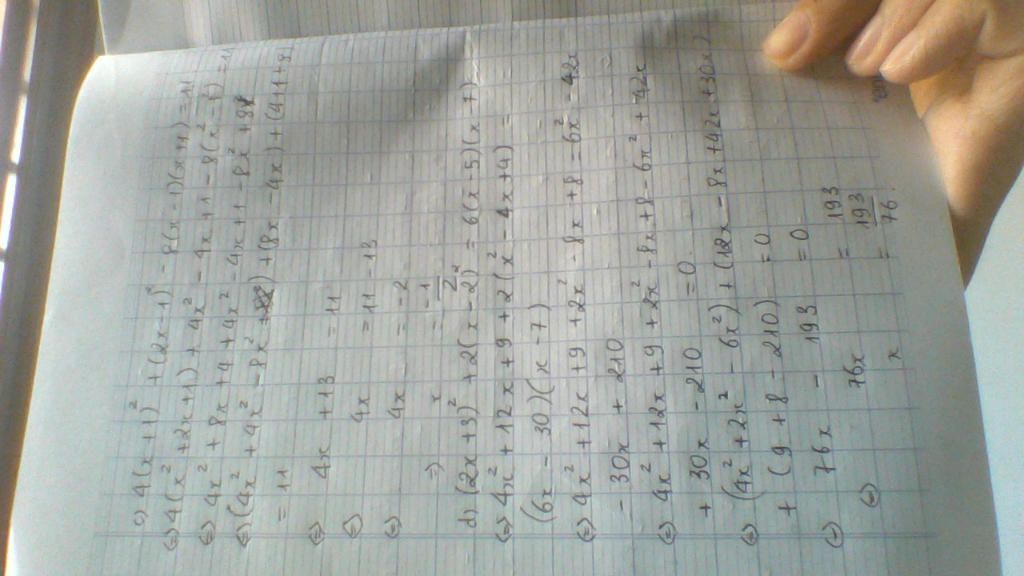 c) 4(x+1)² + (2x-1)² - 8(x-1)(x+1) = 11
(=) 4(x² + 2x + 1) + 4x² - 4x + 1 - 8(x² - 1²) = 11
(=) 4x² + 8x + 4 + 4x² - 4x + 1 - 8x² + 8 =
(=) (4x² + 4x² - 8x²) + (8x - 4x) + (4+1+8)
= 11
(=) 4x + 13 = 11
(=) 4x = 11 - 13
(=) 4x = -2
=) x = -1/2
d) (2x+3)² + 2(x-2)² = 6(x-5)(x-7)
(=) 4x² + 12x + 9 + 2(x² - 4x + 4) =
(6x - 30)(x - 7)
(=) 4x² + 12x + 9 + 2x² - 8x + 8 = 6x² - 42x
- 30x + 210
(=) 4x² + 12x + 9 + 2x² - 8x + 8 - 6x² + 42x
+ 30x - 210 = 0
(=) (4x² + 2x² - 6x²) + (12x - 8x + 42x + 30x)
+ (9 + 8 - 210) = 0
(=) 76x - 193 = 0
(=) 76x = 193
x = 193/76